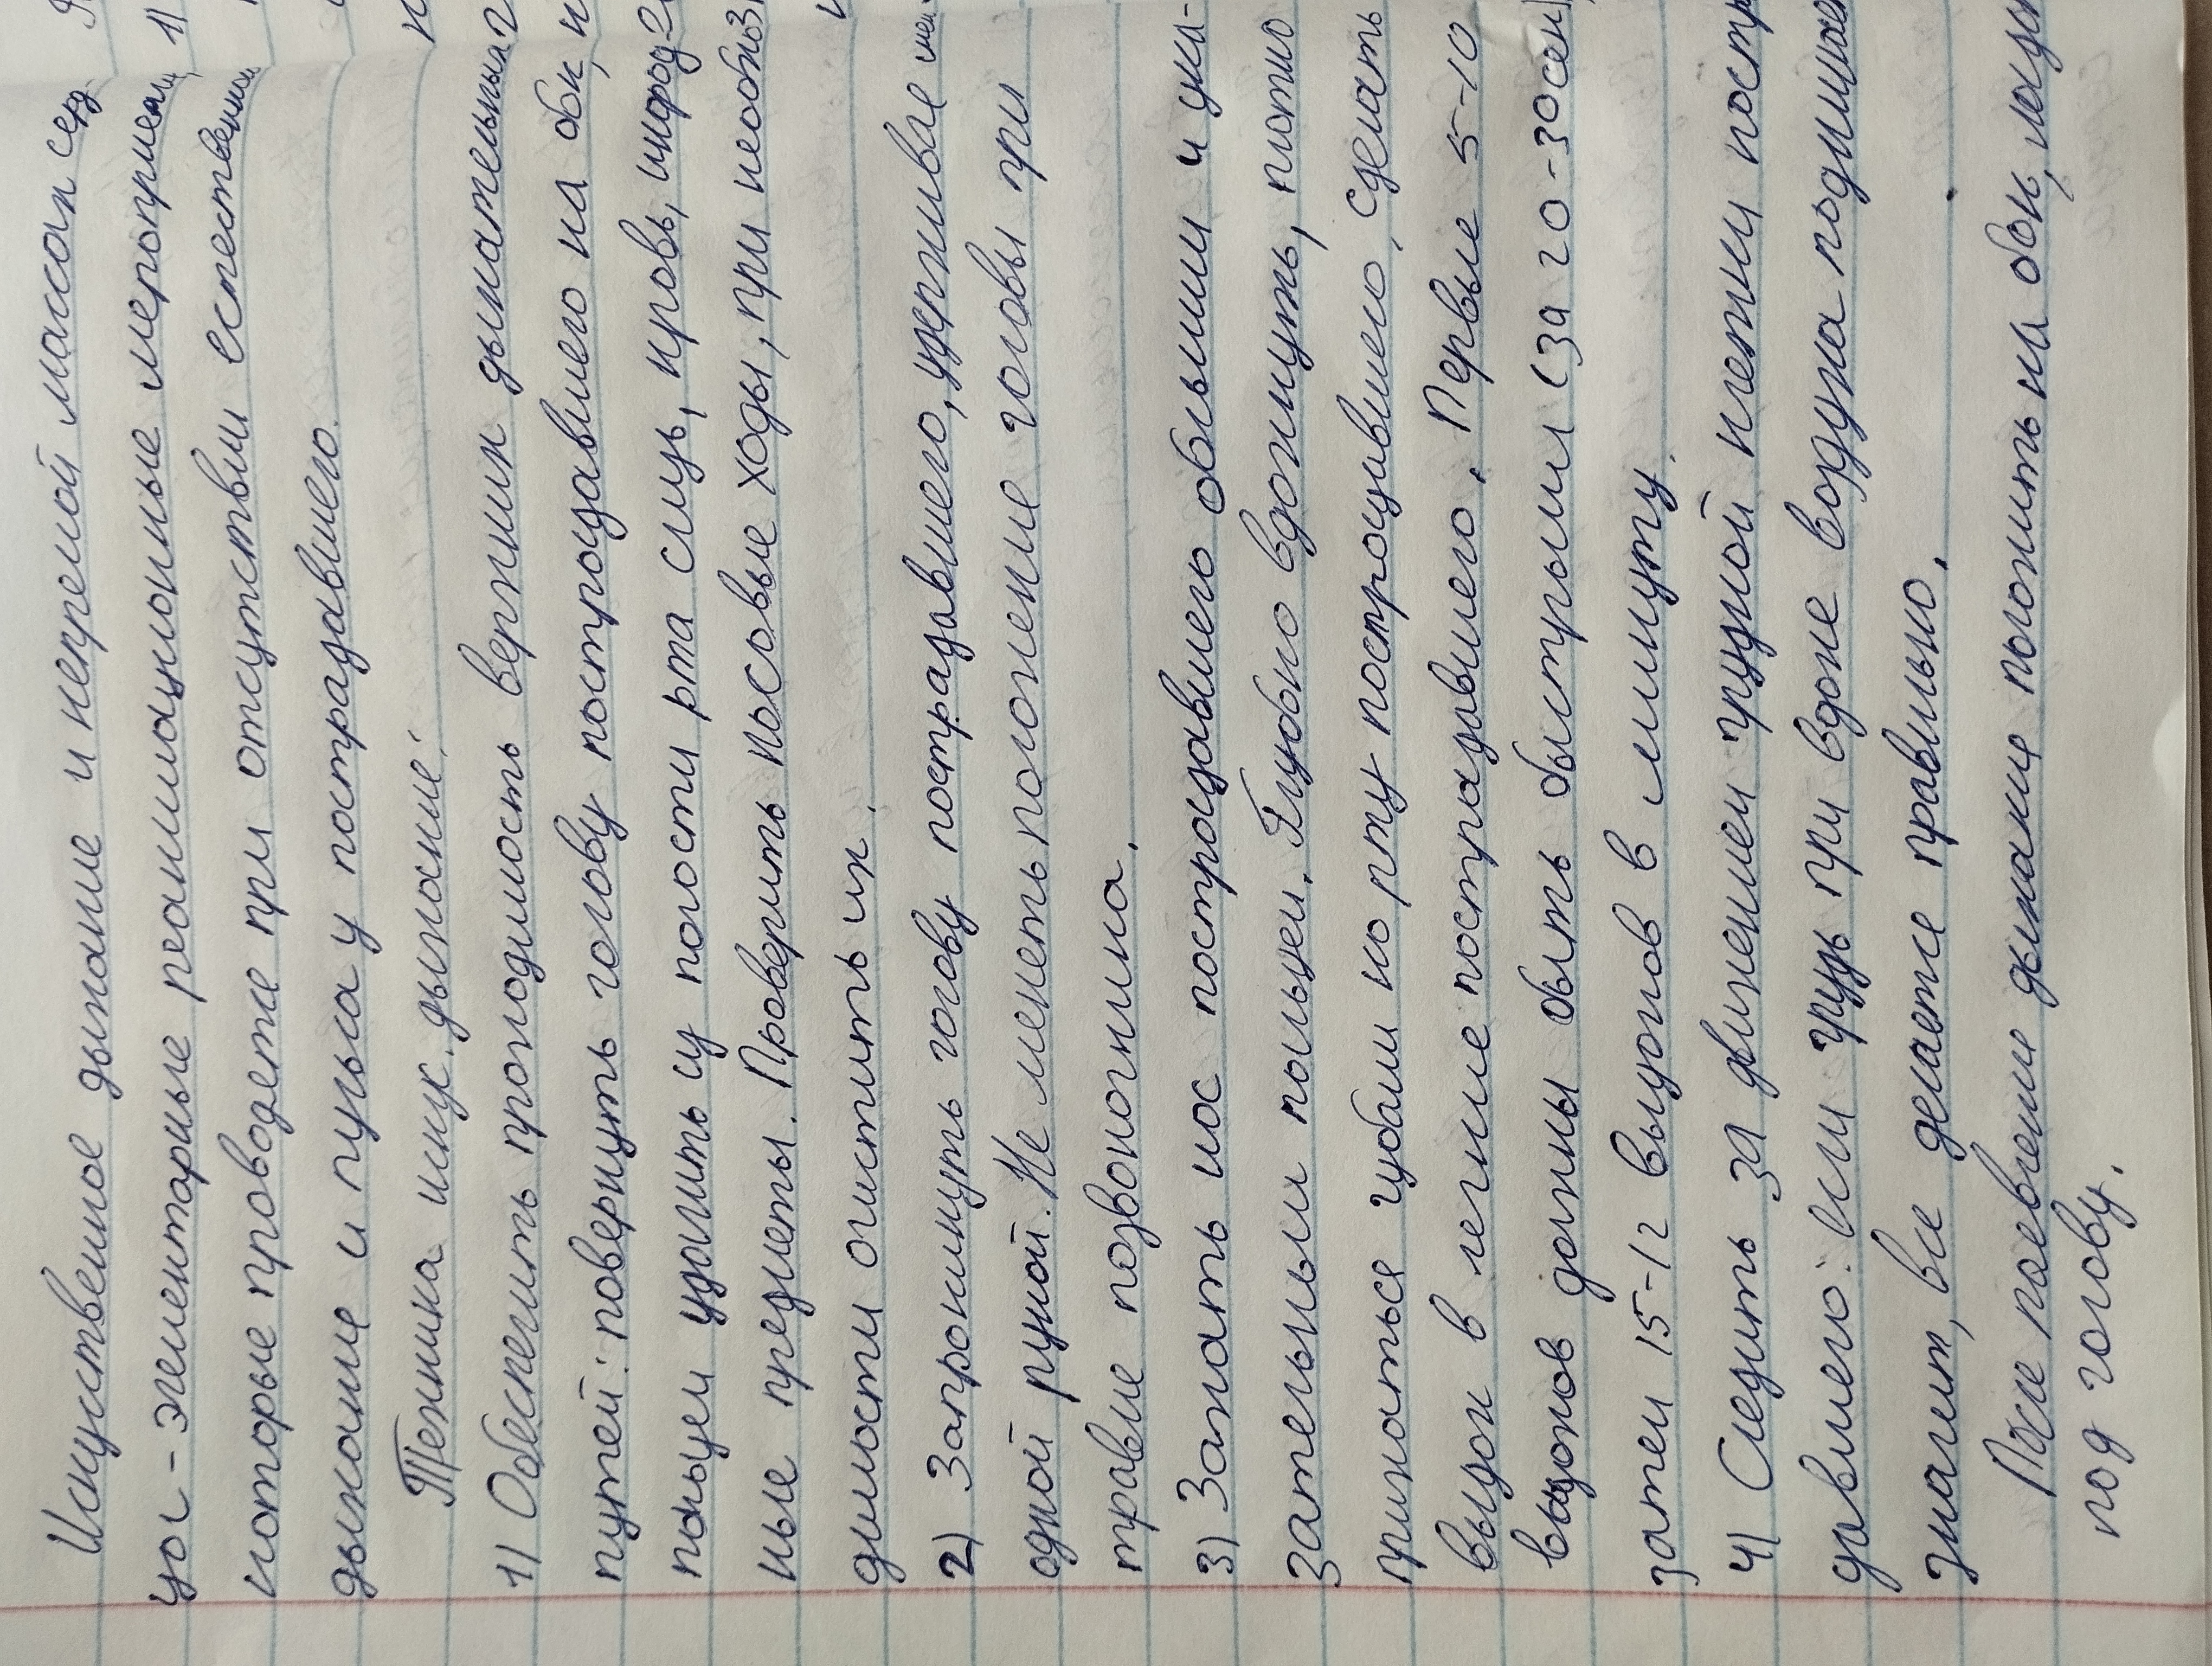 Искуственное дыхание и непрямой массаж серд
ца - элементарные реанимационные мероприятия,
которые проводятся при отсутствии естественного
дыхание и пульса у пострадавшего.
Техника иск. дыхание:
1) Обеспечить проходимость верхних дыхательных
путей: повернуть голову пострадавшего на бок,
пальцем удалить из полости рта слизь, кровь, инород-
ные предметы. Проверить носовые ходы, при необхо
димости очистить их.
2) Запрокинуть голову пострадавшего, удерживая шею
одной рукой. Не менять положение головы при
травме позвоночника.
3) Зажать нос пострадавшего большим и ука-
зательным пальцем. Глубоко вдохнуть, плотно
прижаться губами ко рту пострадавшего, сделать
выдох в легкие пострадавшего. Первые 5-10
выдохов должны быть быстрыми (за 20-30 сек),
затем 15-12 выдохов в минуту.
4) Следить за движением грудной клетки постра
давшего: если грудь при вдохе воздуха поднимает
значит, все делаете правильно.
После появление дыхание положить на бок,
под голову.